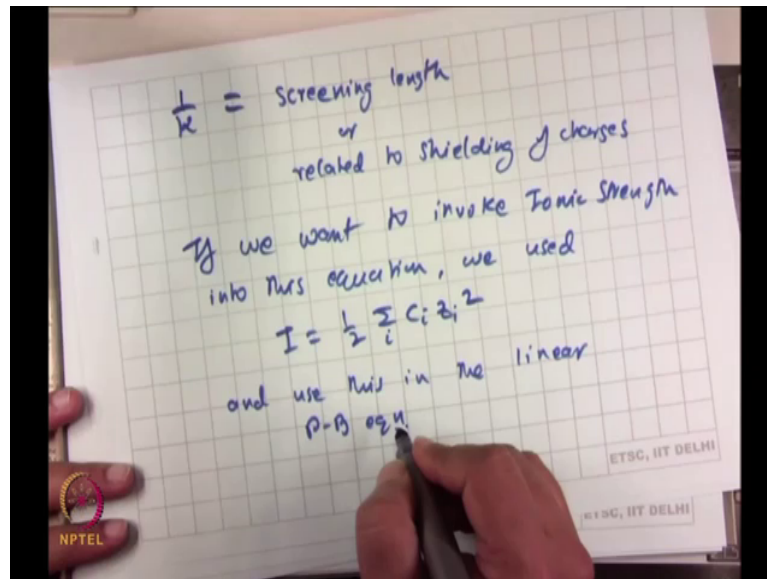 1/κ = screening length
or
related to shielding of charges
If we want to invoke Ionic Strength
into this equation, we used
I = 1/2 Σ_i c_i z_i^2
and use this in the linear
P-B eqn.
ETSC, IIT DELHI
ETSC, IIT DELHI
NPTEL